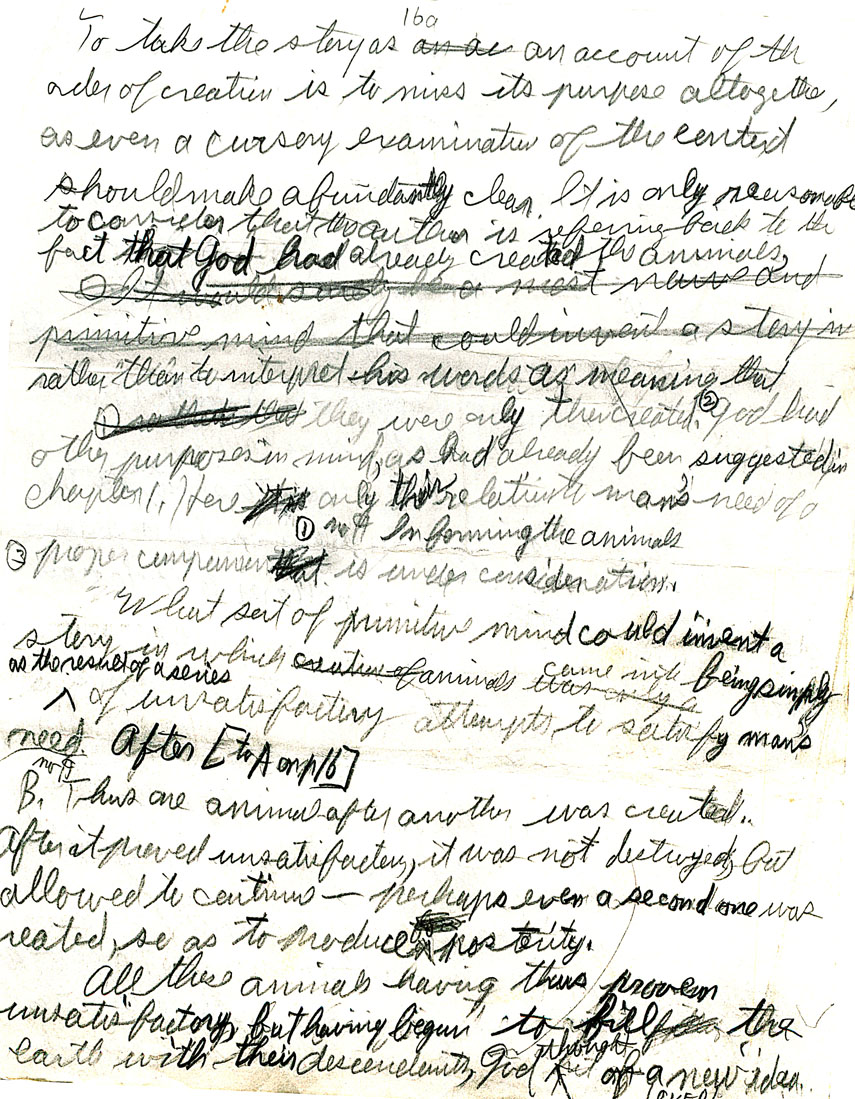 16a
To take the story as an ac an account of th
order of creation is to miss its purpose altogether,
as even a cursory examination of the context
should make abundantly clear. It is only reasonable
to consider that the author is referring back to the
fact that God had already created the animals,
It would surely be a most naive and
primitive mind that could invent a story in
rather than to interpret his words as meaning that
① they were only then created. ② God had
other purposes in mind, as had already been suggested in
chapter 1. Here only their relation to man's need of a
① no ¶ In forming the animals
③ proper companion that is under consideration.
What sort of primitive mind could invent a
story in which creation of animals was only a came into being simply
as the result of a series
^ of unsatisfactory attempts to satisfy man's
need After [to A on p 16]
no ¶
B. Thus one animal after another was created..
After it proved unsatisfactory, it was not destroyed, but
allowed to continue — perhaps even a second one was
reated, so as to produce posterity.
All these animals having thus proven
unsatisfactory, but having begun to fill the
earth with their descendents, God thought of a new idea.
(OVER)